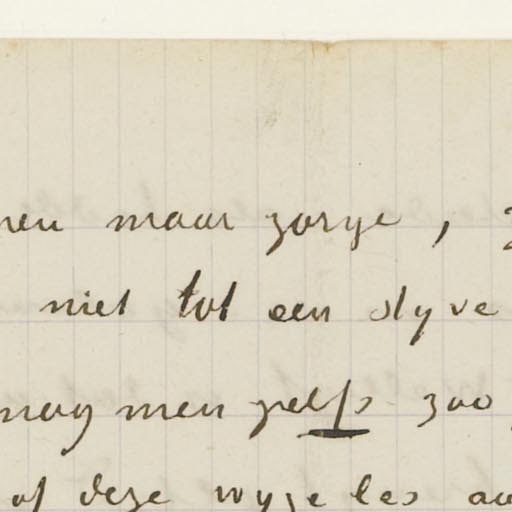 men maar zorge,
niet tot een styve
mag men zelfs zoo
of deze wyze les